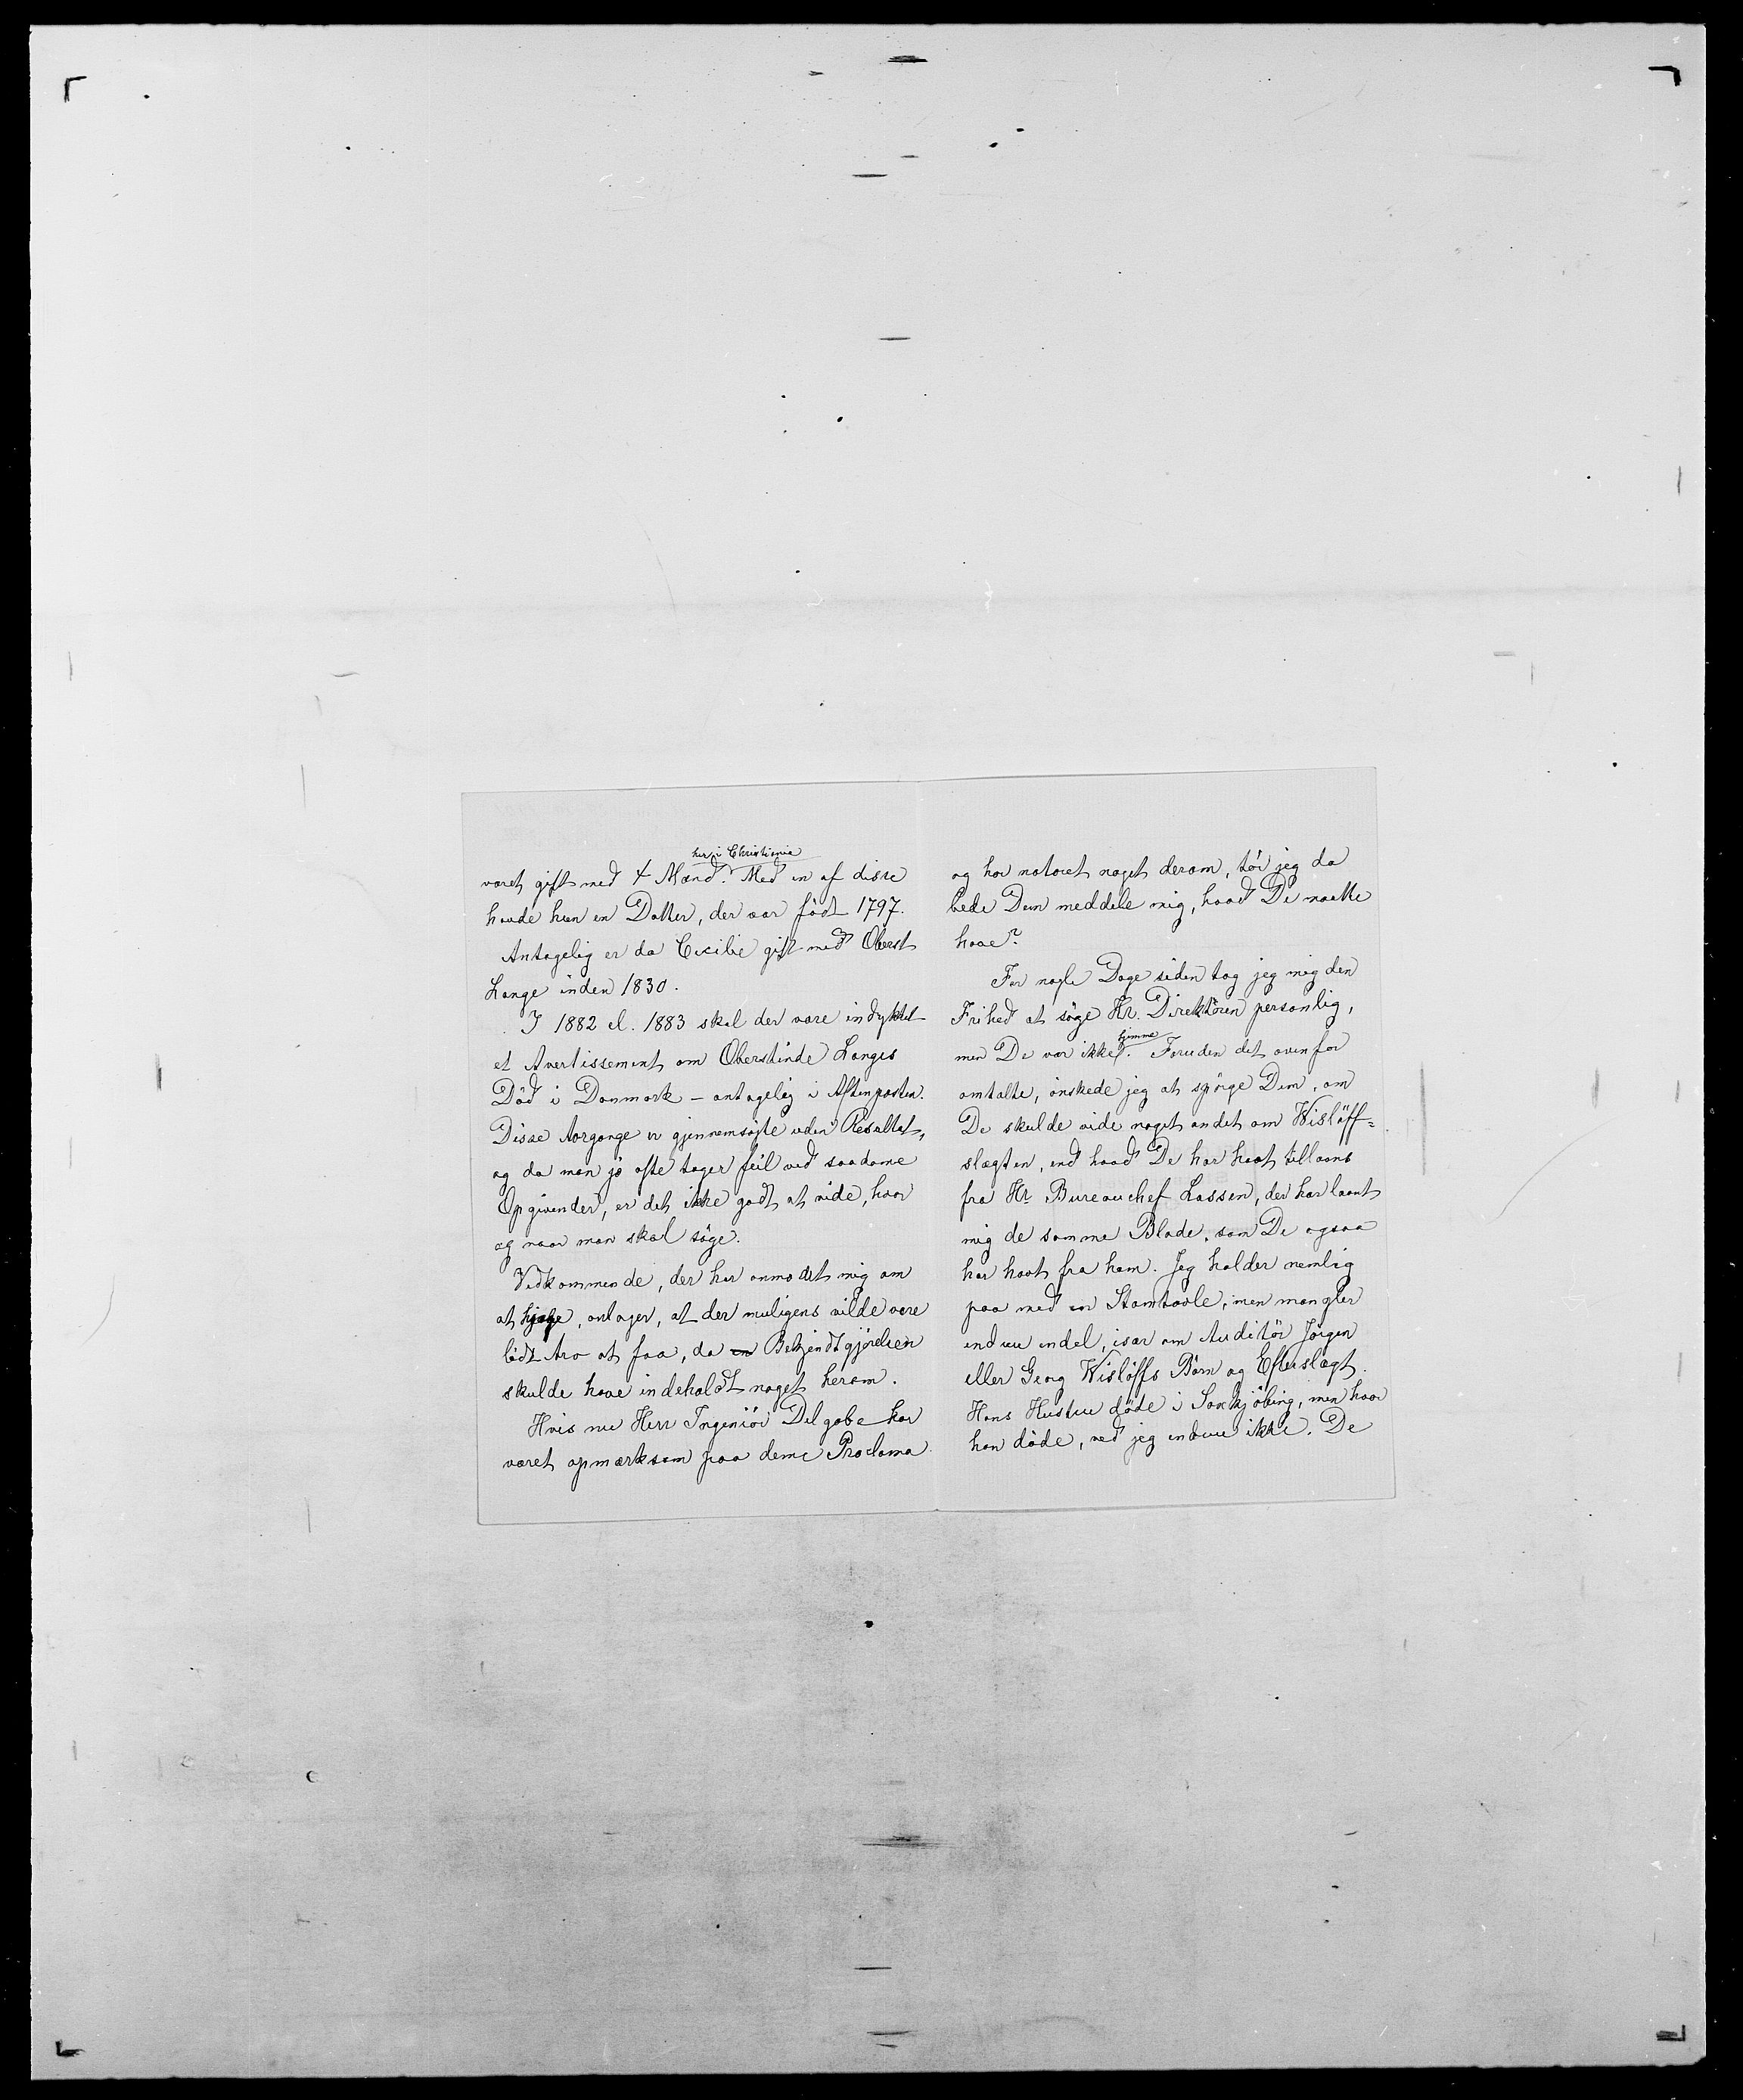 her i Christiania
været gift med 4 Mænd. Med en af disse
havde hun en Datter, der var född 1797.
Antagelig er da Cecilie gift med Oberst
Lange inden 1830.
I 1882 el. 1883 skal der være indrykket
et Avertissement om Oberstinde Langes
Död i Danmark – antagelig i Aftenposten.
Disse Aargange er gjennemsögte uden Resultat,
og da man jo ofte tager feil ved saadanne
Opgivender, er det ikke godt at vide, hvor
og naar man skal söge.
Vedkommende, der har anmodet mig om
at hjælpe, antager, at der muligens vilde være
lidt Arv at faa, da en Bekjendtgjörelsen
skulde have indeholdt noget herom.
Hvis nu Herr Ingeniör Delgobe har
været opmærksom paa denne Proclama
og har noteret noget derom, tör jeg da
bede Dem meddele mig, hvad De maatte
have?
For nogle Dage siden tog jeg mig den
Frihed at söge Hr. Direktören personlig,
hjemme
men De var ikke. Foruden det ovenfor
omtalte, önskede jeg at spörge Dem, om
De skulde vide noget andet om Wislöff=
slægten, end hvad De har havt tillaans
fra Hr. Bureauchef Lassen, der har laant
mig de samme Blade, som De ogsaa
har havt fra ham. Jeg holder nemlig
paa med en Stamtavle, men mangler
endnu endel, især om Auditör Jörgen
eller Georg Wislöffs Börn og Efterslægt.
Hans Hustru döde i Saxkjöbing, men hvor
han döde, ved jeg endnu ikke. De